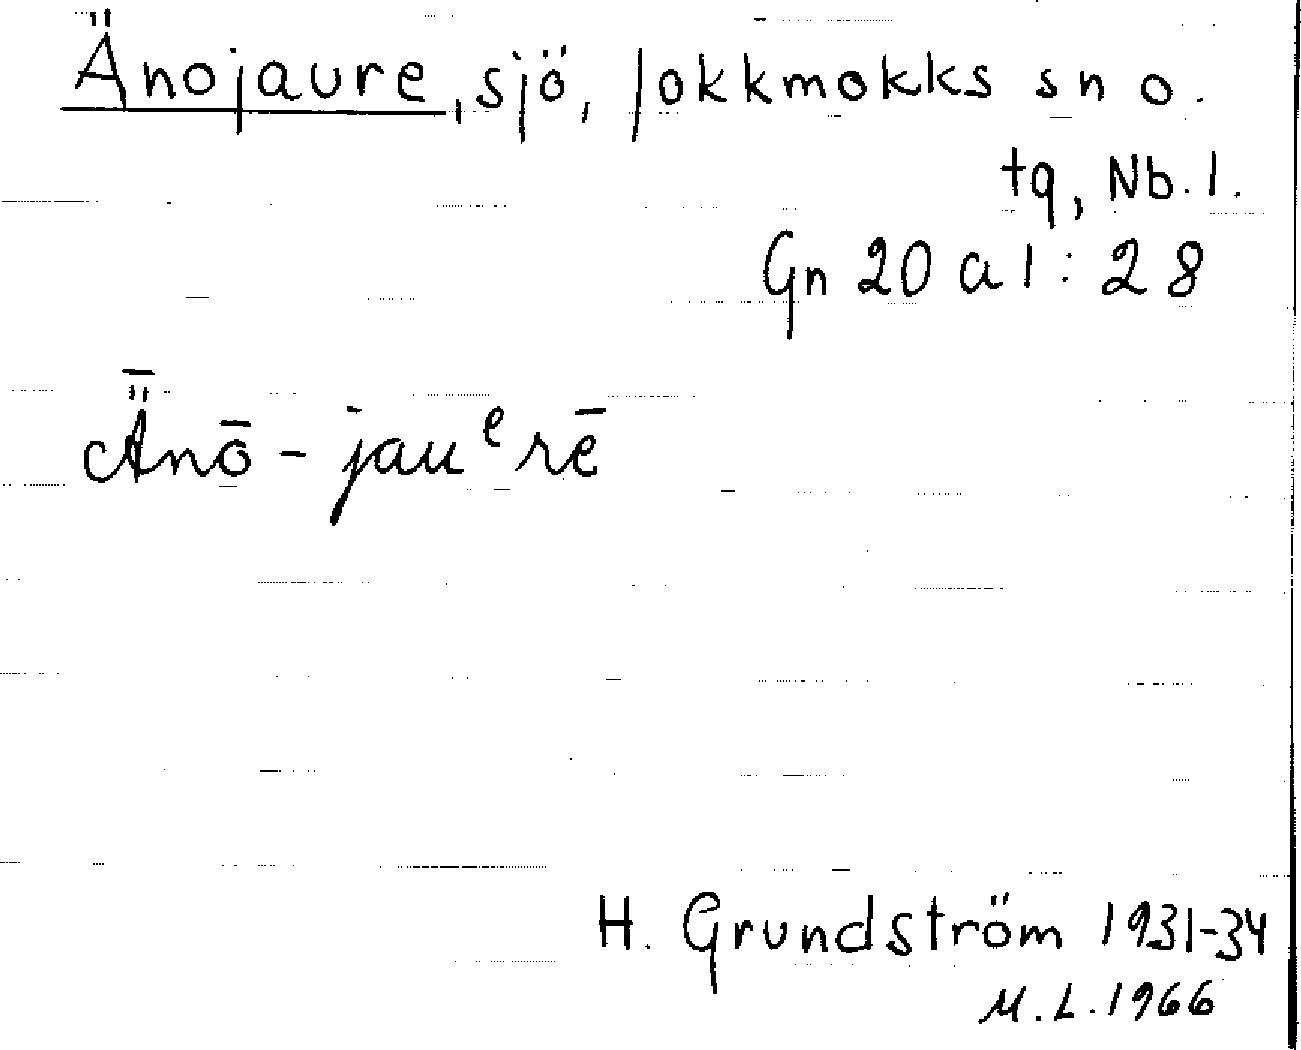 Änojaure, sjö, Jokkmokks sn o.
tq, Nb. l.
Gn 20 a 1 : 28
Ǟnō - jauᵉrē
H. Grundström 1931-34
M. L. 1966